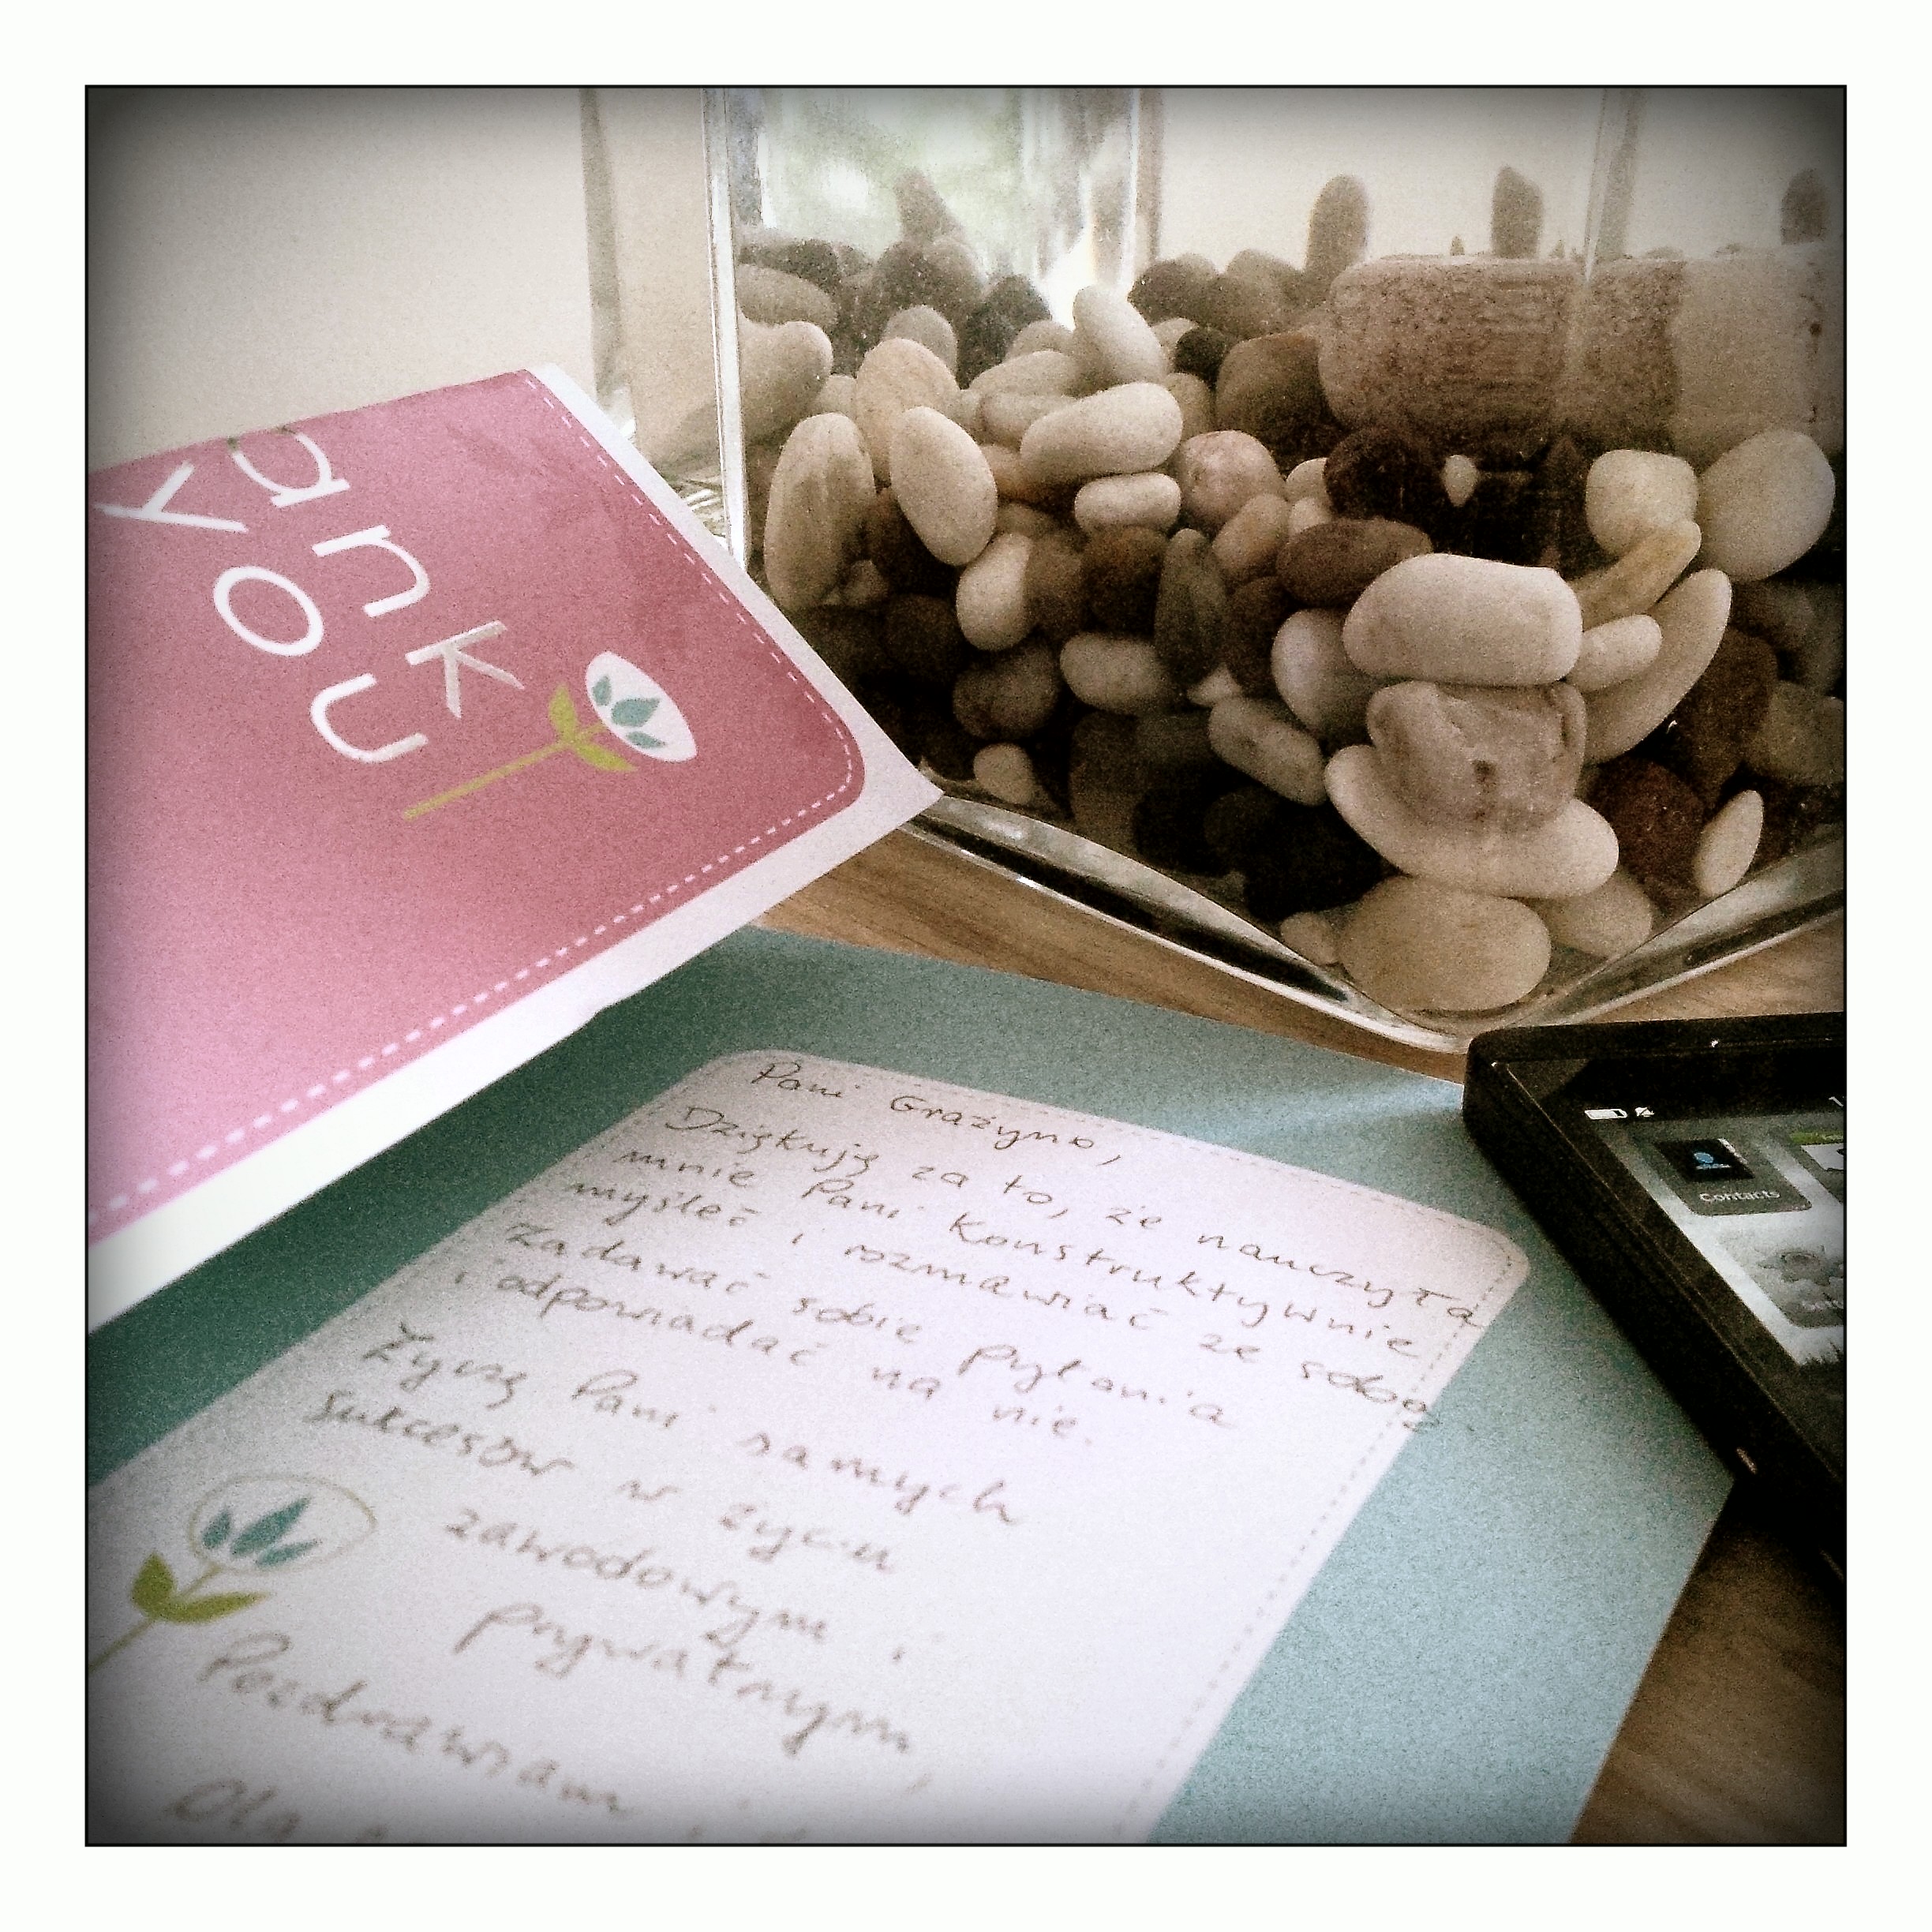 ank
you
Pani Grażyno,
Dziękuję za to, że nauczyła
mnie Pani konstruktywnie
myśleć i rozmawiać ze sobą.
Zadawać sobie pytania
i odpowiadać na nie.
Życzę Pani samych
sukcesów w życiu
zawodowym i
prywatnym,
Pozdrawiam
Contacts